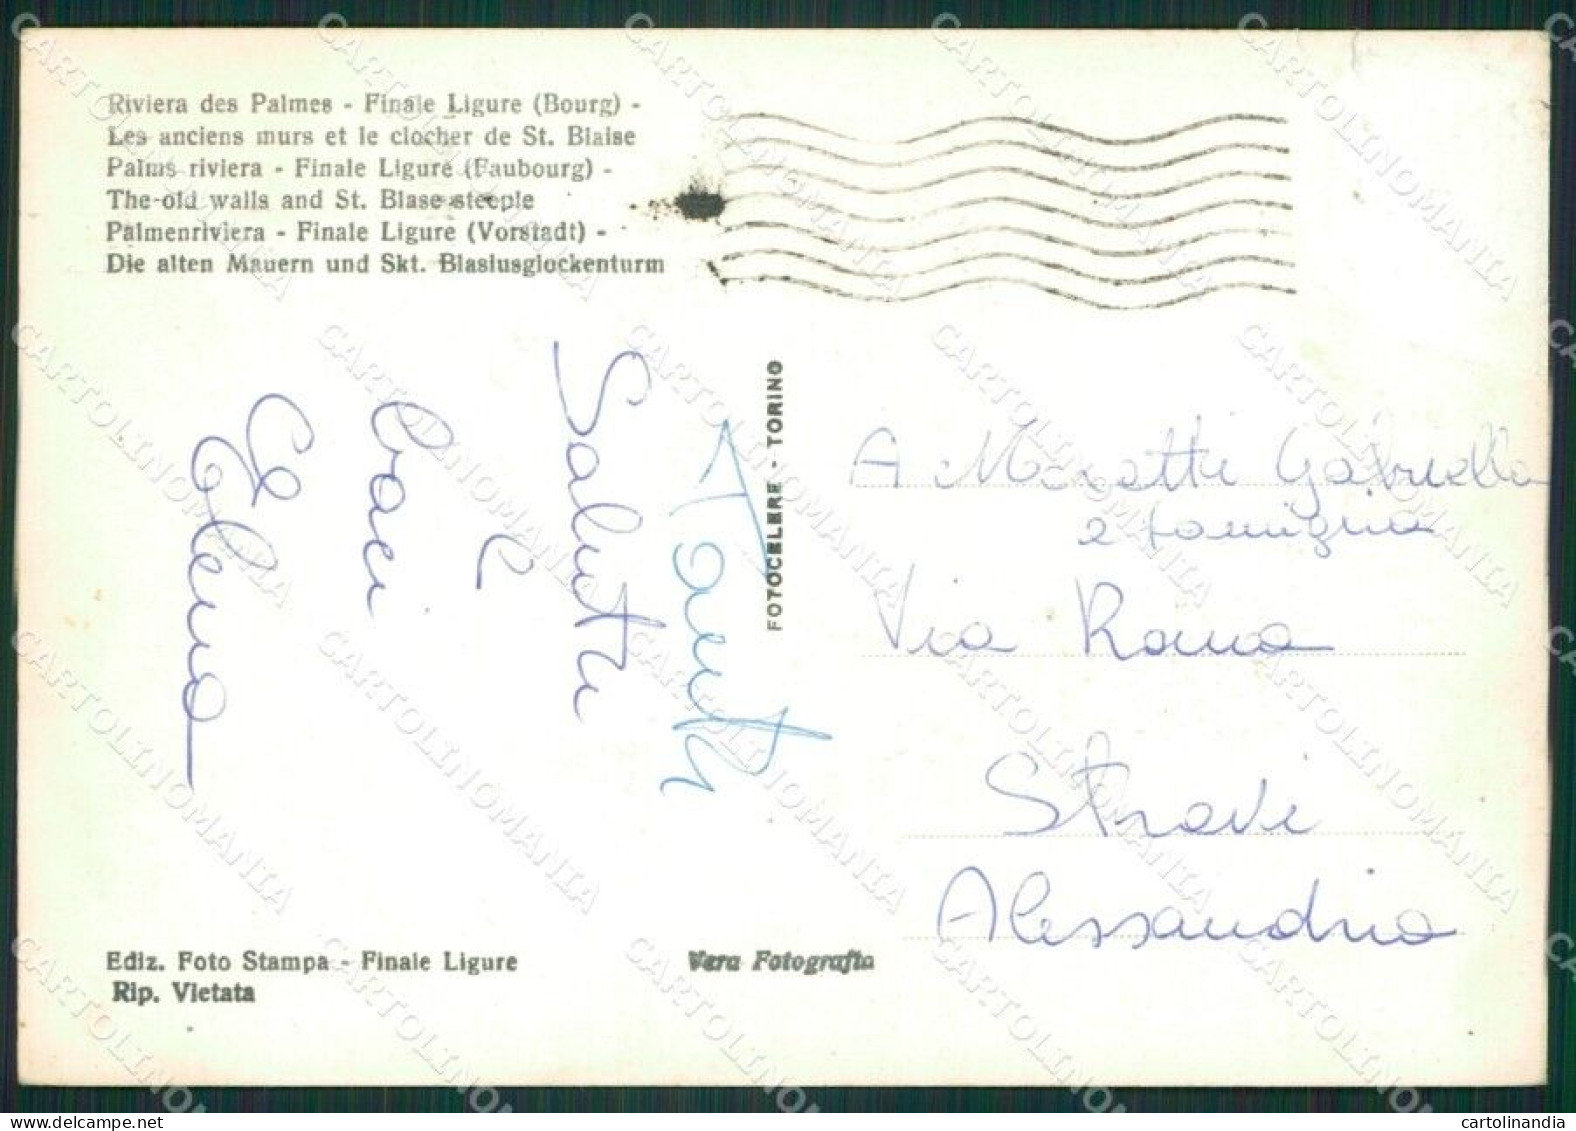 Riviera des Palmes - Finale Ligure (Bourg) -
Les anciens murs et le clocher de St. Blaise
Palms riviera - Finale Ligure (Faubourg) -
The old walls and St. Blase steeple
Palmenriviera - Finale Ligure (Vorstadt) -
Die alten Mauern und Skt. Blasiusglockenturm
Tanti
Saluti
e
baci
Elena
FOTOCELERE - TORINO
A Moratti Gabriella
e famiglia
Via Roma
Strevi
Alessandria
Ediz. Foto Stampa - Finale Ligure
Rip. Vietata
Vera Fotografia
CARTOLINOMANIA
cartolinandia